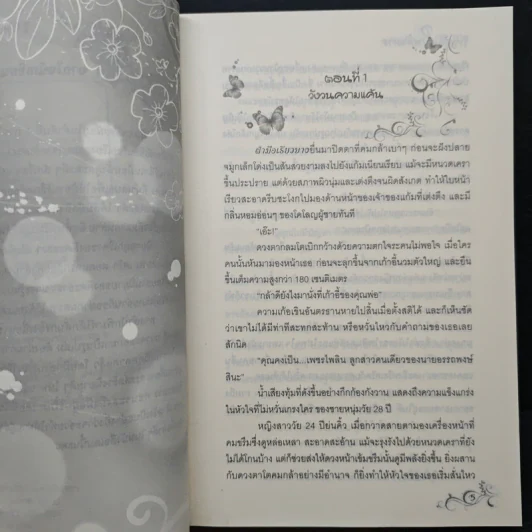 ตอนที่ 1
วังวนความแค้น
ฝ่ามือเรียวบางยื่นมาปิดตาที่คมกล้าเบาๆ ก่อนจะฝังปลาย
จมูกเล็กโด่งเป็นสันสวยงามลงไปยังแก้มเนียนเรียบ แม้จะมีหนวดเครา
ขึ้นประปราย แต่ด้วยสภาพผิวนุ่มและเต่งตึงจนผิดสังเกต ทำให้ใบหน้า
เรียวสะอาดรีบชะโงกไปมองด้านหน้าของเจ้าของแก้มที่เต่งตึง และมี
กลิ่นหอมอ่อนๆ ของโคโลญผู้ชายทันที
"เอ๊ะ!"
ดวงตากลมโตเบิกกว้างด้วยความตกใจระคนไม่พอใจ เมื่อใคร
คนนั้นหันมามองหน้าเธอ ก่อนจะลุกขึ้นจากเก้าอี้นวมตัวใหญ่ และยืน
ขึ้นเต็มความสูงกว่า 180 เซนติเมตร
"กล้าดียังไงมานั่งที่เก้าอี้ของคุณพ่อ"
ความเก้อเขินอันตรธานหายไปสิ้นเมื่อตั้งสติได้ และก็เห็นชัด
ว่าเขาไม่ได้มีท่าทีสะทกสะท้าน หรือหวั่นไหวกับคำถามของเธอเลย
สักนิด
"คุณคงเป็น...เพชรไพลิน ลูกสาวคนเดียวของนายอรรถพงษ์
สินะ"
น้ำเสียงทุ้มที่ดังขึ้นอย่างกึกก้องกังวาน แสดงถึงความแข็งแกร่ง
ในหัวใจที่ไม่หวั่นเกรงใคร ของชายหนุ่มวัย 28 ปี
หญิงสาววัย 24 ปีย่นคิ้ว เมื่อกวาดสายตามองเครื่องหน้าที่
คมขรึมซึ่งดูหล่อเหลา สะอาดสะอ้าน แม้จะรุงรังไปด้วยหนวดเคราที่ยัง
ไม่ได้โกนบ้าง แต่ก็ช่วยส่งให้ดวงหน้าเข้มขรึมนั้นดูมีพลังยิ่งขึ้น ยิ่งผสาน
กับดวงตาโตคมกล้าอย่างมีอำนาจ ก็ยิ่งทำให้หัวใจของเธอเริ่มสั่นไหว
5